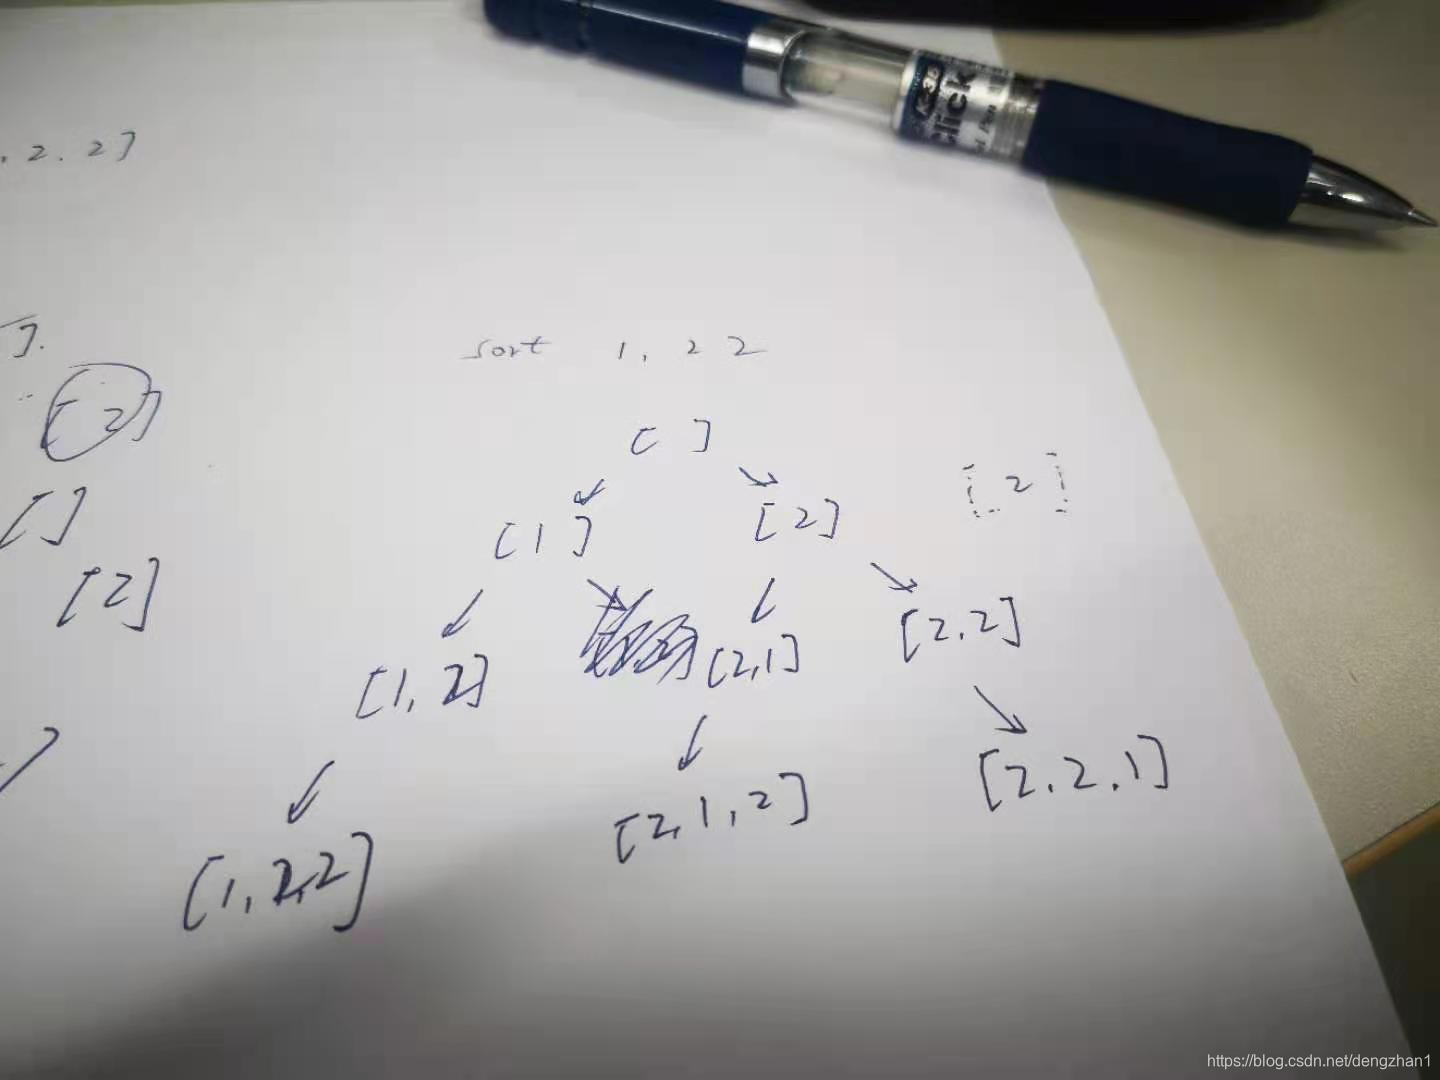 . 2 . 2 ]
K-35
Click
Pen
sort 1, 2 2
].
[ 2 ]
[ ]
[ 2 ]
[ 1 ]
[ 2 ]
[ ]
[ 2 ]
[1, 2]
[2,1]
[2.2]
[1,2,2]
[2,1,2]
[2.2.1]
https://blog.csdn.net/dengzhan1